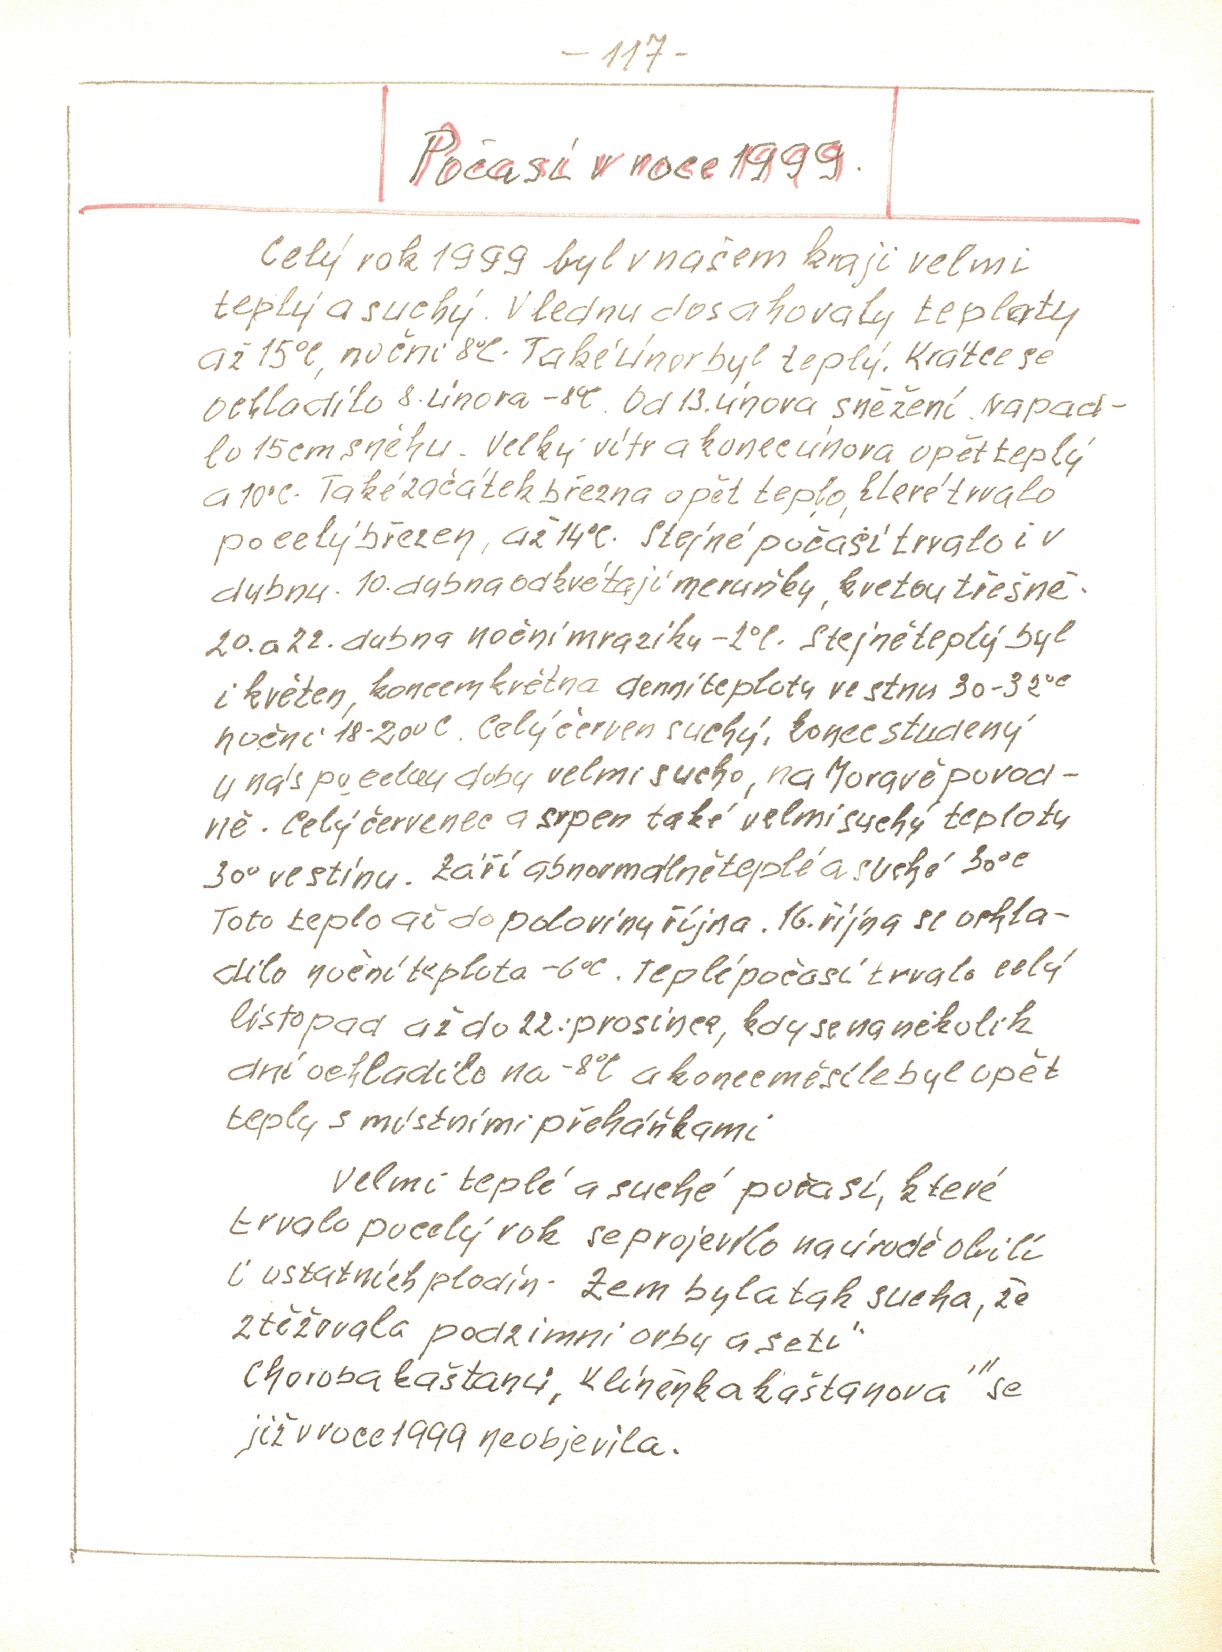 - 117 -
Počasí v roce 1999.
Celý rok 1999 byl v našem kraji velmi
teplý a suchý. V lednu dosahovaly teploty
až 15°C, noční 8°C. Také únor byl teplý. Krátce se
ochladilo 8. února -8°C. Od 13. února sněžení. Napad-
lo 15 cm sněhu. Velký vítr a konec února opět teplý
a 10°C. Také začátek března opět teplo, které trvalo
po celý březen, až 14°C. Stejné počaší trvalo i v
dubnu. 10. dubna odkvétají meruňky, kvetou třešně.
20. a 22. dubna noční mraziky -2°C. Stejně teplý byl
i květen, koncem května denní teploty ve stnu 30-32°C
noční 18-20°C. Celý červen suchý, konec studený
u nás po celou dobu velmi sucho, na Moravě povod-
ně. Celý červenec a srpen také velmi suchý teploty
30° ve stínu. Září abnormálně teplé a suché 30°C
Toto teplo až do poloviny října. 16. října se ochla-
dilo noční teplota -6°C. Teplé počasí trvalo celý
listopad až do 22. prosince, kdy se na několik
dní ochladilo na -8°C a konec měsíce byl opět
teply s místními přeháňkami
Velmi teplé a suché počasí, které
trvalo po celý rok se projevilo na úrodě obilí
i ostatních plodin. Zem byla tak sucha, že
ztěžovala podzimní orby a setí"
Choroba kaštanů, Klíněnka kaštanova" se
již v roce 1999 neobjevila.